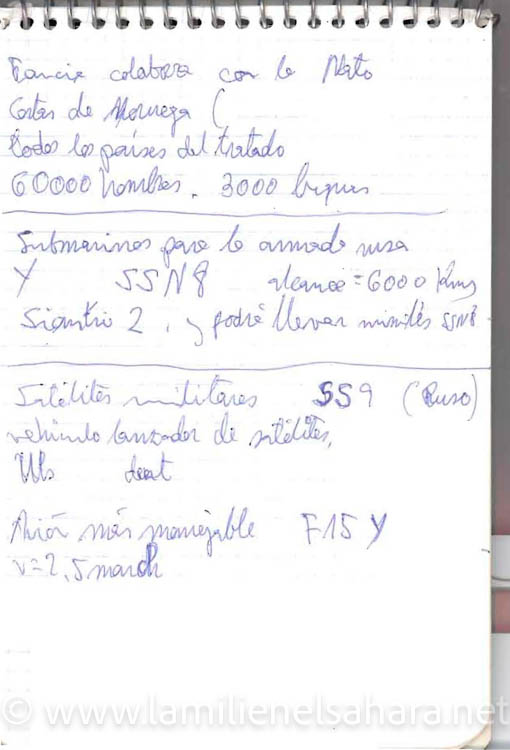 Francia colabora con la Nato
Costas de Noruega (
todos los países del tratado
60000 hombres. 3000 buques
Submarinos para la armada rusa
Y SSN8 alcance = 6000 Kms
2, y podrá llevar misiles SSN8
Satélites militares SS9 (Ruso)
vehiculo lanzador de satélites,
Avión más manejable F15 y
v=2,5 march
© www.lamilienelsahara.net